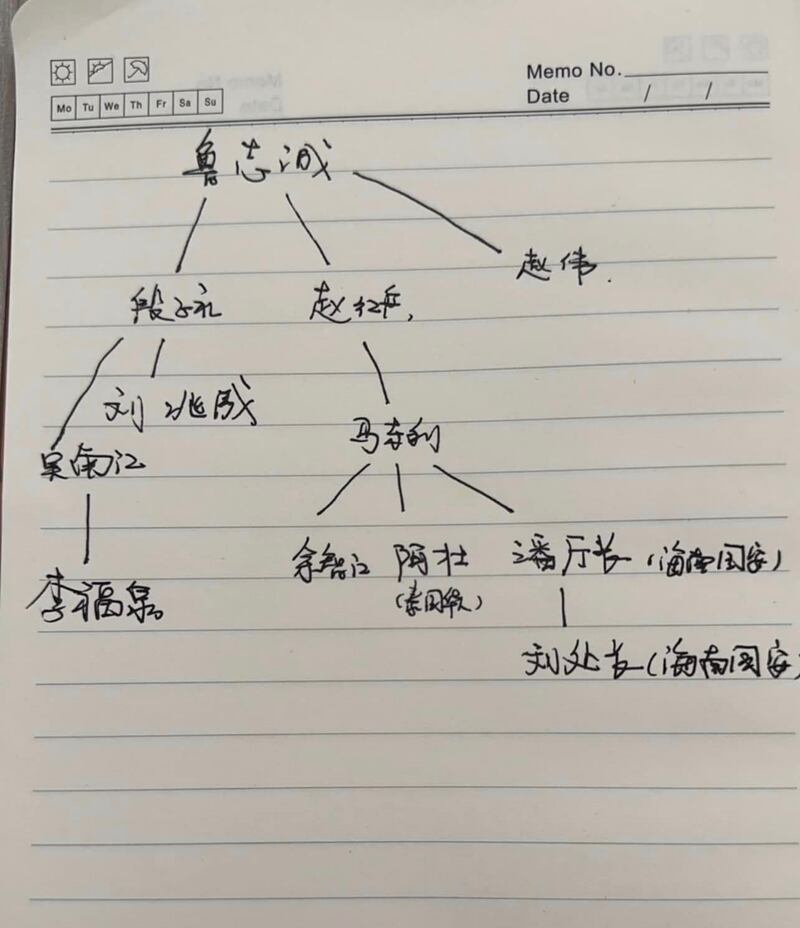 Memo No.
Mo Tu We Th Fr Sa Su
Date / /
鲁志诚
赵伟.
段子礼 赵红兵,
刘兆成
马奔利
吴南江
余智江 阿壮 潘厅长(海南国安)
李福泉
刘处长(海南国安)